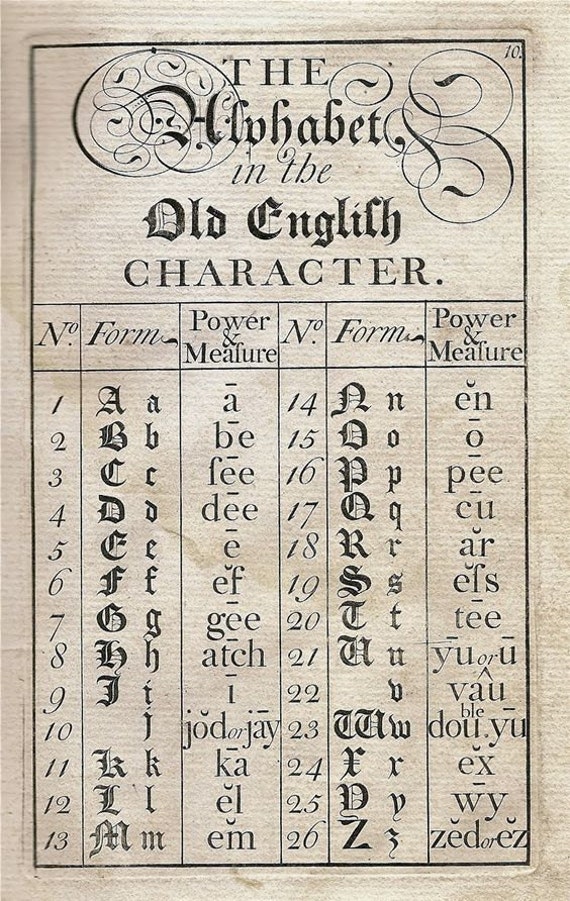 10.
THE
Alphabet
in the
Old Engliſh
CHARACTER.
No. Form Power & Meaſure No. Form Power & Meaſure
1 A a ā 14 N n ĕn
2 B b bē 15 O o ō
3 C c ſēe 16 P p pēe
4 D d dēe 17 Q q cū
5 E e ē 18 R r ăr
6 F f ĕf 19 S s ĕſs
7 G g gēe 20 T t tēe
8 H h ātch 21 U u ȳu or ū
9 I i ī 22 v vâu
10 j jŏd or jāy 23 W w double.yū
11 K k kā 24 X x ĕx
12 L l ĕl 25 Y y wȳ
13 M m ĕm 26 Z z zĕd or ĕz